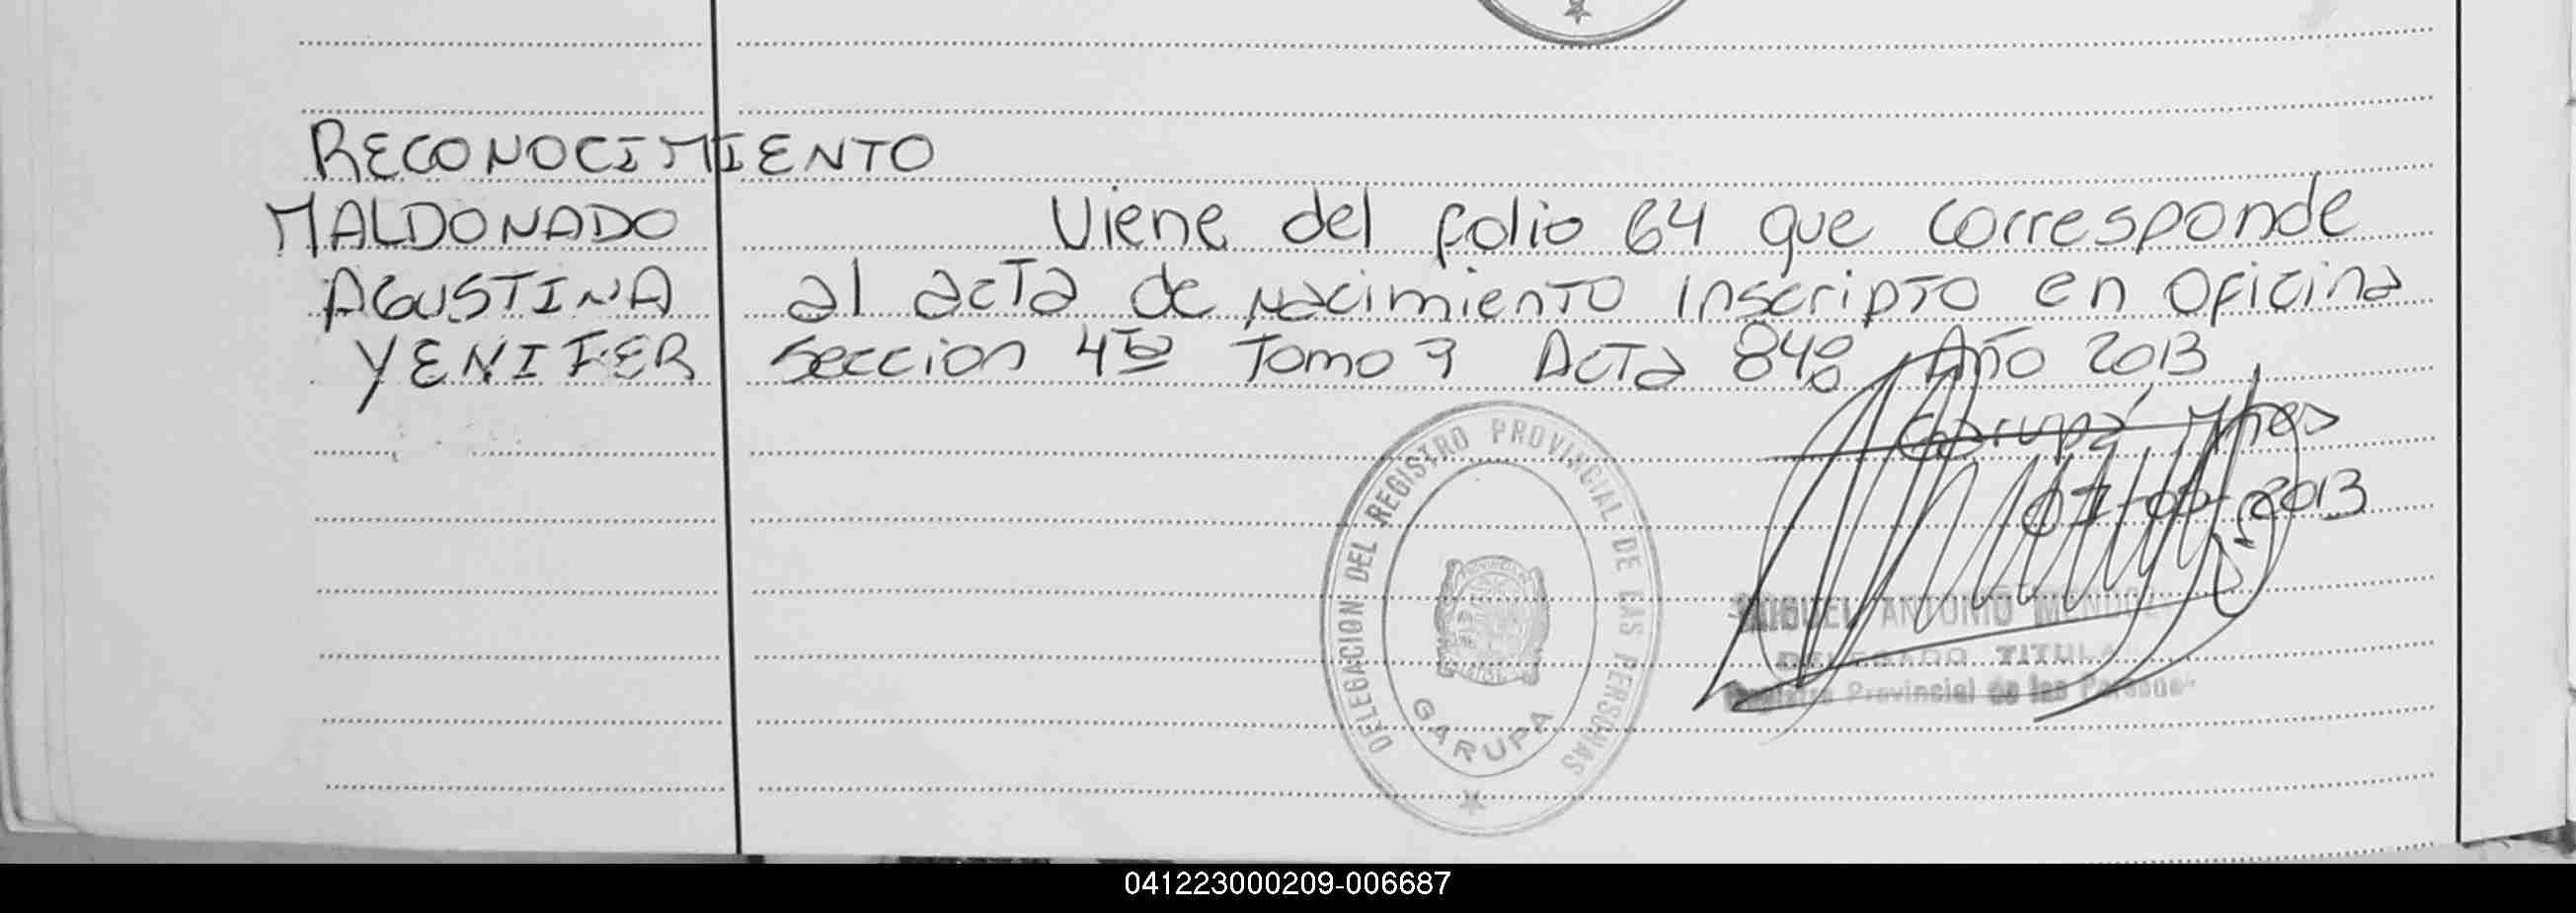 RECONOCIMIENTO
MALDONADO
AGUSTINA
YENIFER
Viene del folio 64 que corresponde
al acta de nacimiento inscripto en oficina
seccion 4ta Tomo Acta Año 2013
Garupá Mnes
2013
DELEGACION DEL REGISTRO PROVINCIAL DE LAS PERSONAS
GARUPA
MIGUEL ANTONIO
DELEGADO TITULAR
Registro Provincial de las Personas
041223000209-006687